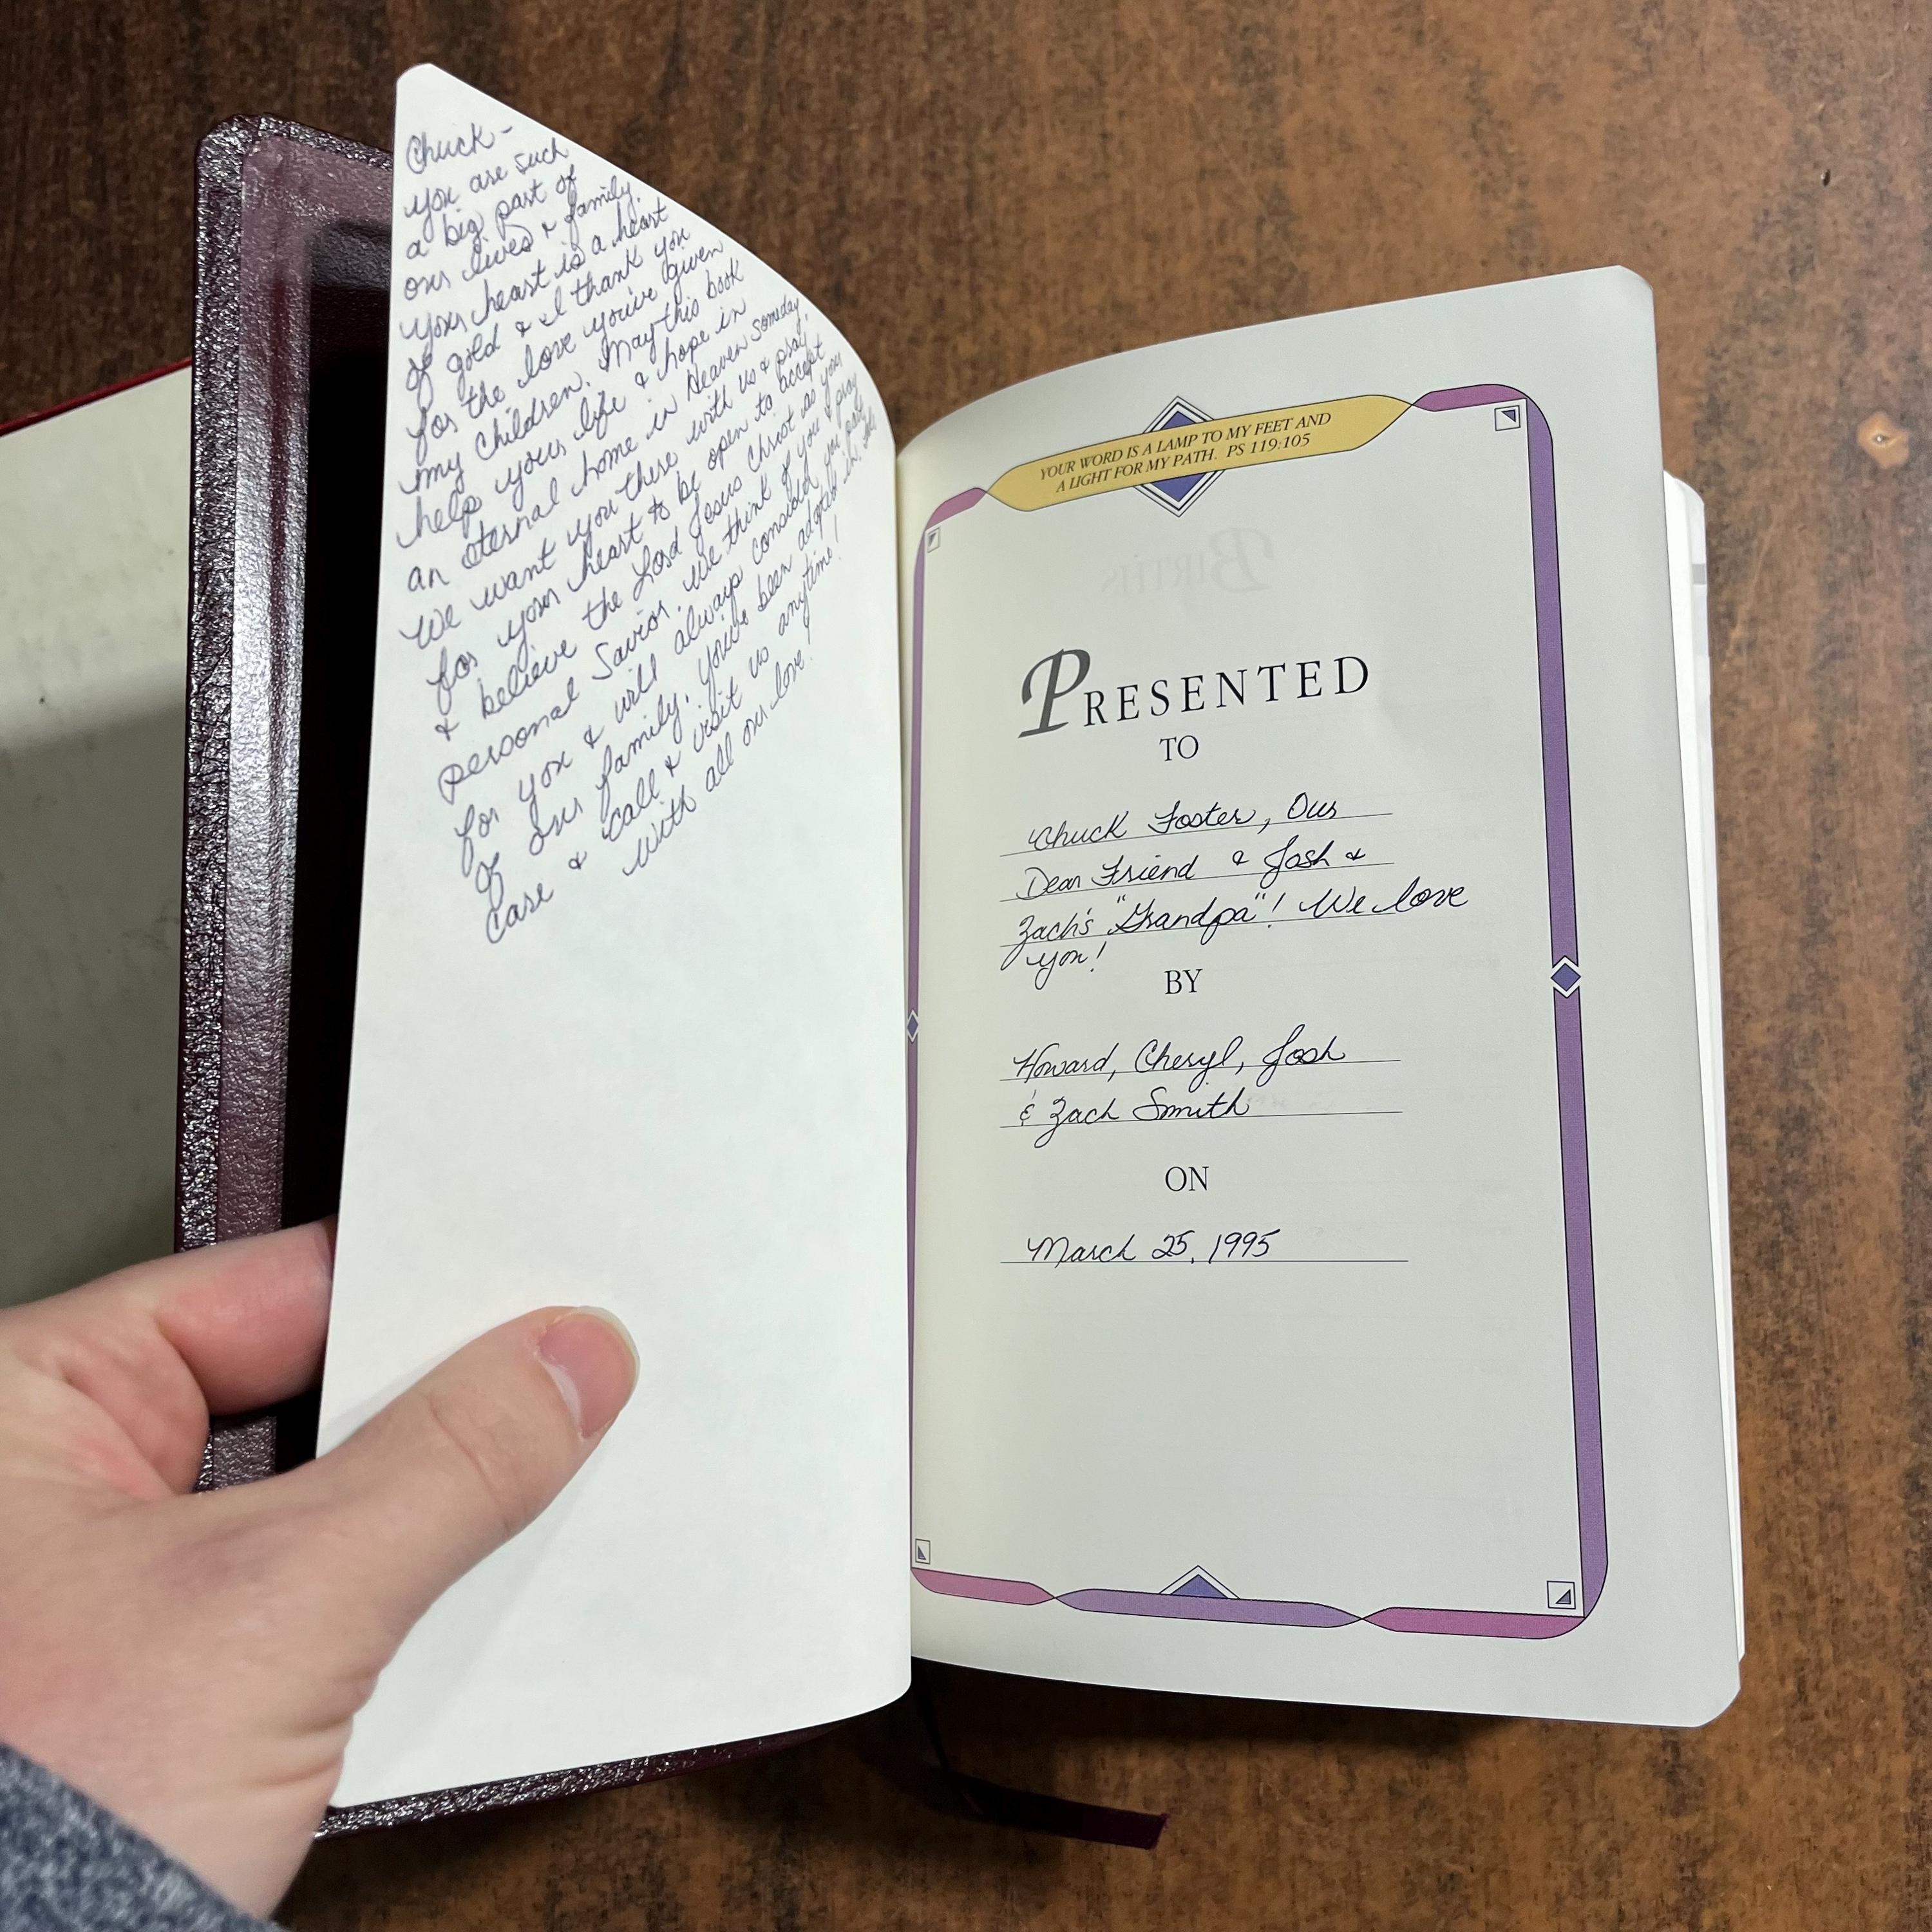 Chuck -
you are such
a big part of
our lives & family.
your heart is a heart
of gold & I thank you
for the love you've given
my children. May this book
help your life & hope in
an eternal home in Heaven someday.
We want you there with us & pray
for your heart to be open to accept
& believe the Lord Jesus Christ as your
personal Savior. We think of you & pray
for you & will always consider you part
of our family. You've been adopted in! We
care & call & visit us anytime!
with all our love!
YOUR WORD IS A LAMP TO MY FEET AND
A LIGHT FOR MY PATH. PS 119:105
BIRTHS
PRESENTED
TO
Chuck Foster, Our
Dear Friend & Josh &
Zach's "Grandpa"! We love
you!
BY
Howard, Cheryl, Josh
& Zach Smith
ON
March 25, 1995